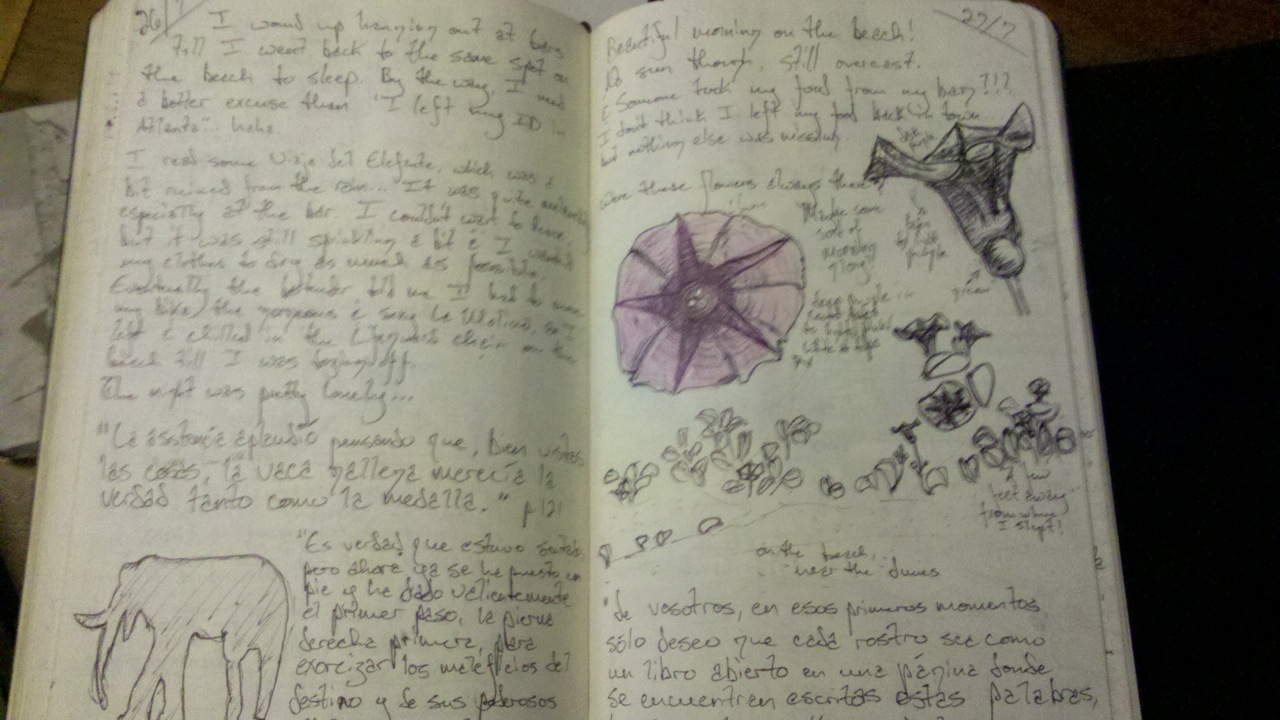 26/7
I wound up hanging out at bars
till I went back to the same spot on
the beach to sleep. By the way, I need
a better excuse than "I left my ID in
Atlanta"... haha.
I read some Viaje del Elefante, which was a
bit ruined from the rain... It was quite
especially at the bar. I couldn't wait to leave
but it was still sprinkling a bit & I wanted
my clothes to dry as much as possible.
Eventually the bartender told me I had to move
my bike, the gorgeous & sexy so I
left & chilled in the chair on the
beach till I was dozing off.
The night was pretty lonely...
"La asistencia aplaudió pensando que, bien vistas
las cosas, la vaca gallega merecía la
verdad tanto como la medalla." p 121
"Es verdad que estuvo sentado
pero ahora ya se ha puesto en
pie y ha dado valientemente
el primer paso, la pierna
derecha primero, para
exorcizar los maleficios del
destino y de sus poderosos
27/7
Beautiful morning on the beach!
No sun though, still overcast.
& Someone took my food from my bag?!?
I don't think I left my food back in town
but nothing else was missing.
Were these flowers always there?
Maybe some
sort of
morning
glory?
deep purple in
to light
white
dark
purple
purple
green
a few
feet away
from where
I slept!
on the beach...
near the dunes
"de vosotros, en esos primeros momentos
sólo deseo que cada rostro sea como
un libro abierto en una página donde
se encuentren escritas estas palabras,